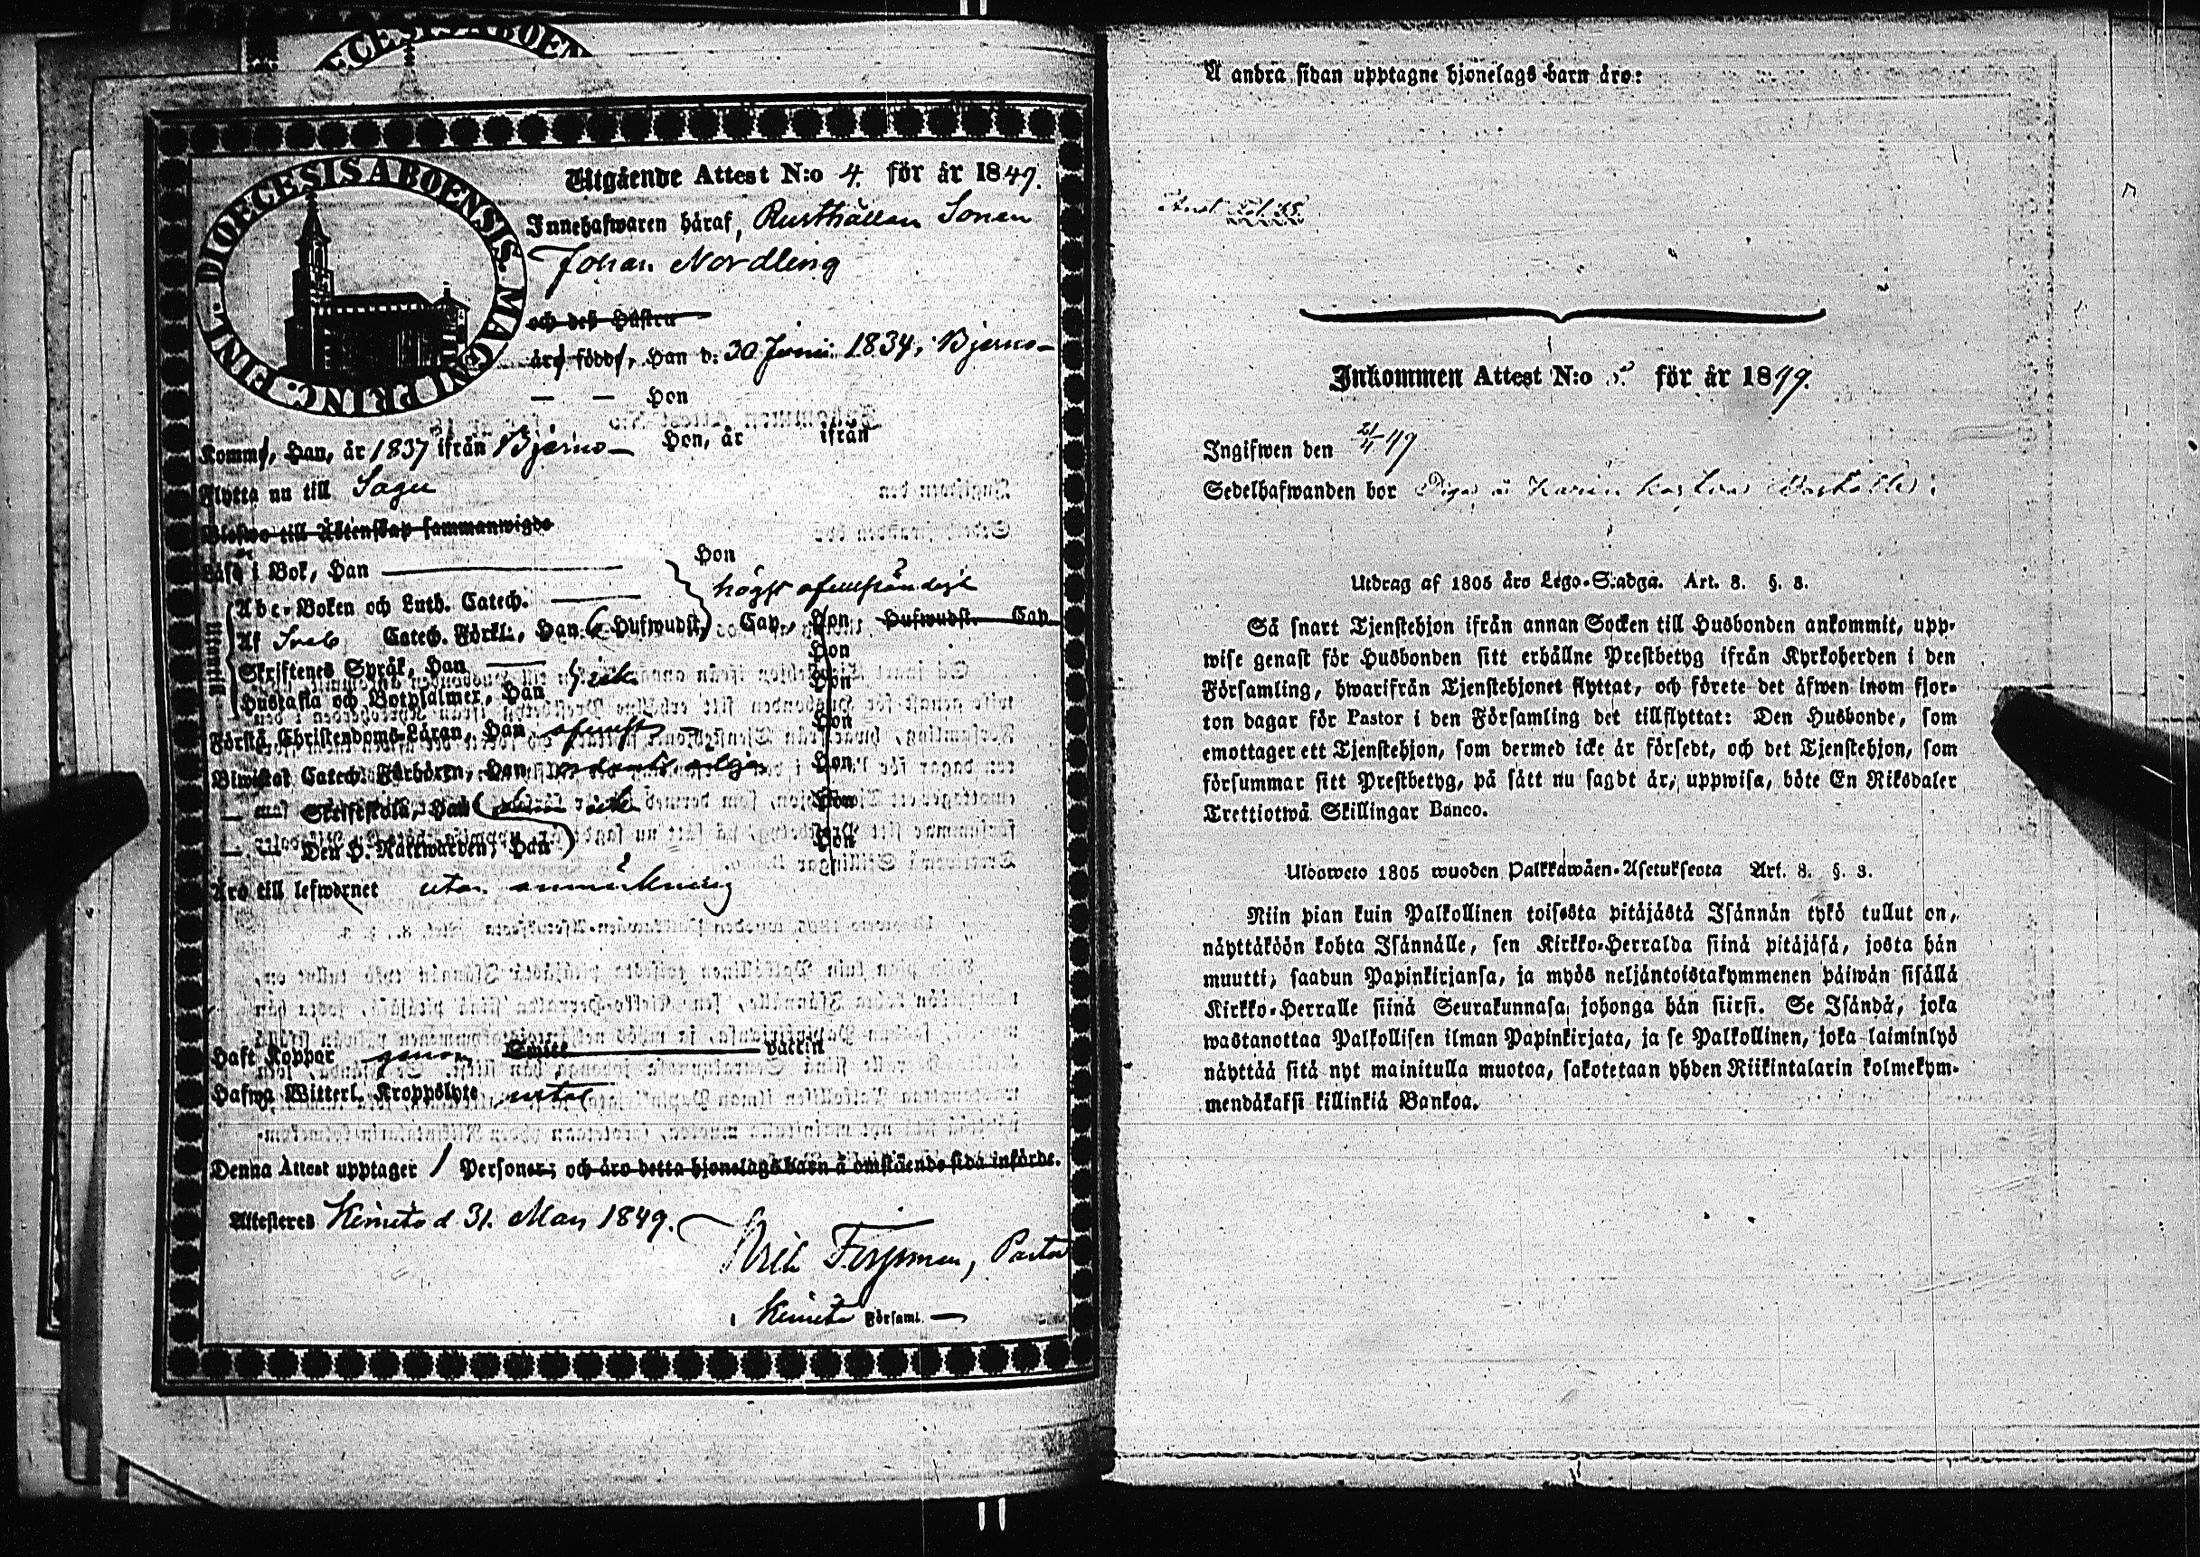 DIOECESIS ABOEN
DIOECESIS ABOENSIS. MAGNI PRINC: FINL.
Utgående Attest N:o 4. för år 1849.
Innehafwaren häraf, Rusthållare Sonen
Johan Nordling
och deß Hustru
äro födde, Han d: 30 Junii 1834, i Bjerno
— — Hon
Komm, Han, år 1837 ifrån Bjerno Hon, år ifrån
Flytta nu till Sagu
Blefwo till Äktenskap sammanwigde
Läsa i Bok, Han Hon
Abc-Boken och Luth. Catech. högst oförständigt
Af Catech. Förkl., Han 6 Hufwudst. Cap., Hon Hufwudst. Cap.
Skriftenes Språk, Han Hon
Hustafla och Botpsalmer, Han Hon
Förstå Christendoms-Läran, Han Hon
Biwistat Catech. Förhören, Han Hon
— Skriftskola, Han Hon
— — Den H. Nattwarden, Han Hon
Äro till lefwernet utan anmärkning
Haft Koppor genom Smitt vaccin
Hafwa Witterl. Kroppslyte intet
Denna Attest upptager 1 Personer; och äro detta hjonelags barn å omstående sida införde.
Attesteres Kimito d 31. Maij 1849.
Pastor
i Kimito Församl.
Å andra sidan upptagne hjonelags barn äro:
Inkommen Attest N:o 5. för år 1849.
Ingifwen den 49
Sedelhafwanden bor
Utdrag af 1805 års Lego-Stadga. Art. 8. §. 3.
Så snart Tjenstehjon ifrån annan Socken till Husbonden ankommit, upp-
wise genast för Husbonden sitt erhållne Prestbetyg ifrån Kyrkoherden i den
Församling, hwarifrån Tjenstehjonet flyttat, och förete det äfwen inom fjor-
ton dagar för Pastor i den Församling det tillflyttat: Den Husbonde, som
emottager ett Tjenstehjon, som dermed icke är försedt, och det Tjenstehjon, som
försummar sitt Prestbetyg, på sätt nu sagdt är, uppwisa, böte En Riksdaler
Trettiotwå Skillingar Banco.
Ulosweto 1805 wuoden Palkkawäen-Asetuksesta Art. 8. §. 3.
Niin pian kuin Palkollinen toisesta pitäjästä Isännän tykö tullut on,
näyttäköön kohta Isännälle, sen Kirkko-Herralda siinä pitäjäsä, josta hän
muutti, saadun Papinkirjansa, ja myös neljäntoistakymmenen päiwän sisällä
Kirkko-Herralle siinä Seurakunnasa, johonga hän siirsi. Se Isändä, joka
wastanottaa Palkollisen ilman Papinkirjata, ja se Palkollinen, joka laiminlyö
näyttää sitä nyt mainitulla muotoa, sakotetaan yhden Riikintalarin kolmekym-
mendäkaksi killinkiä Bankoa.